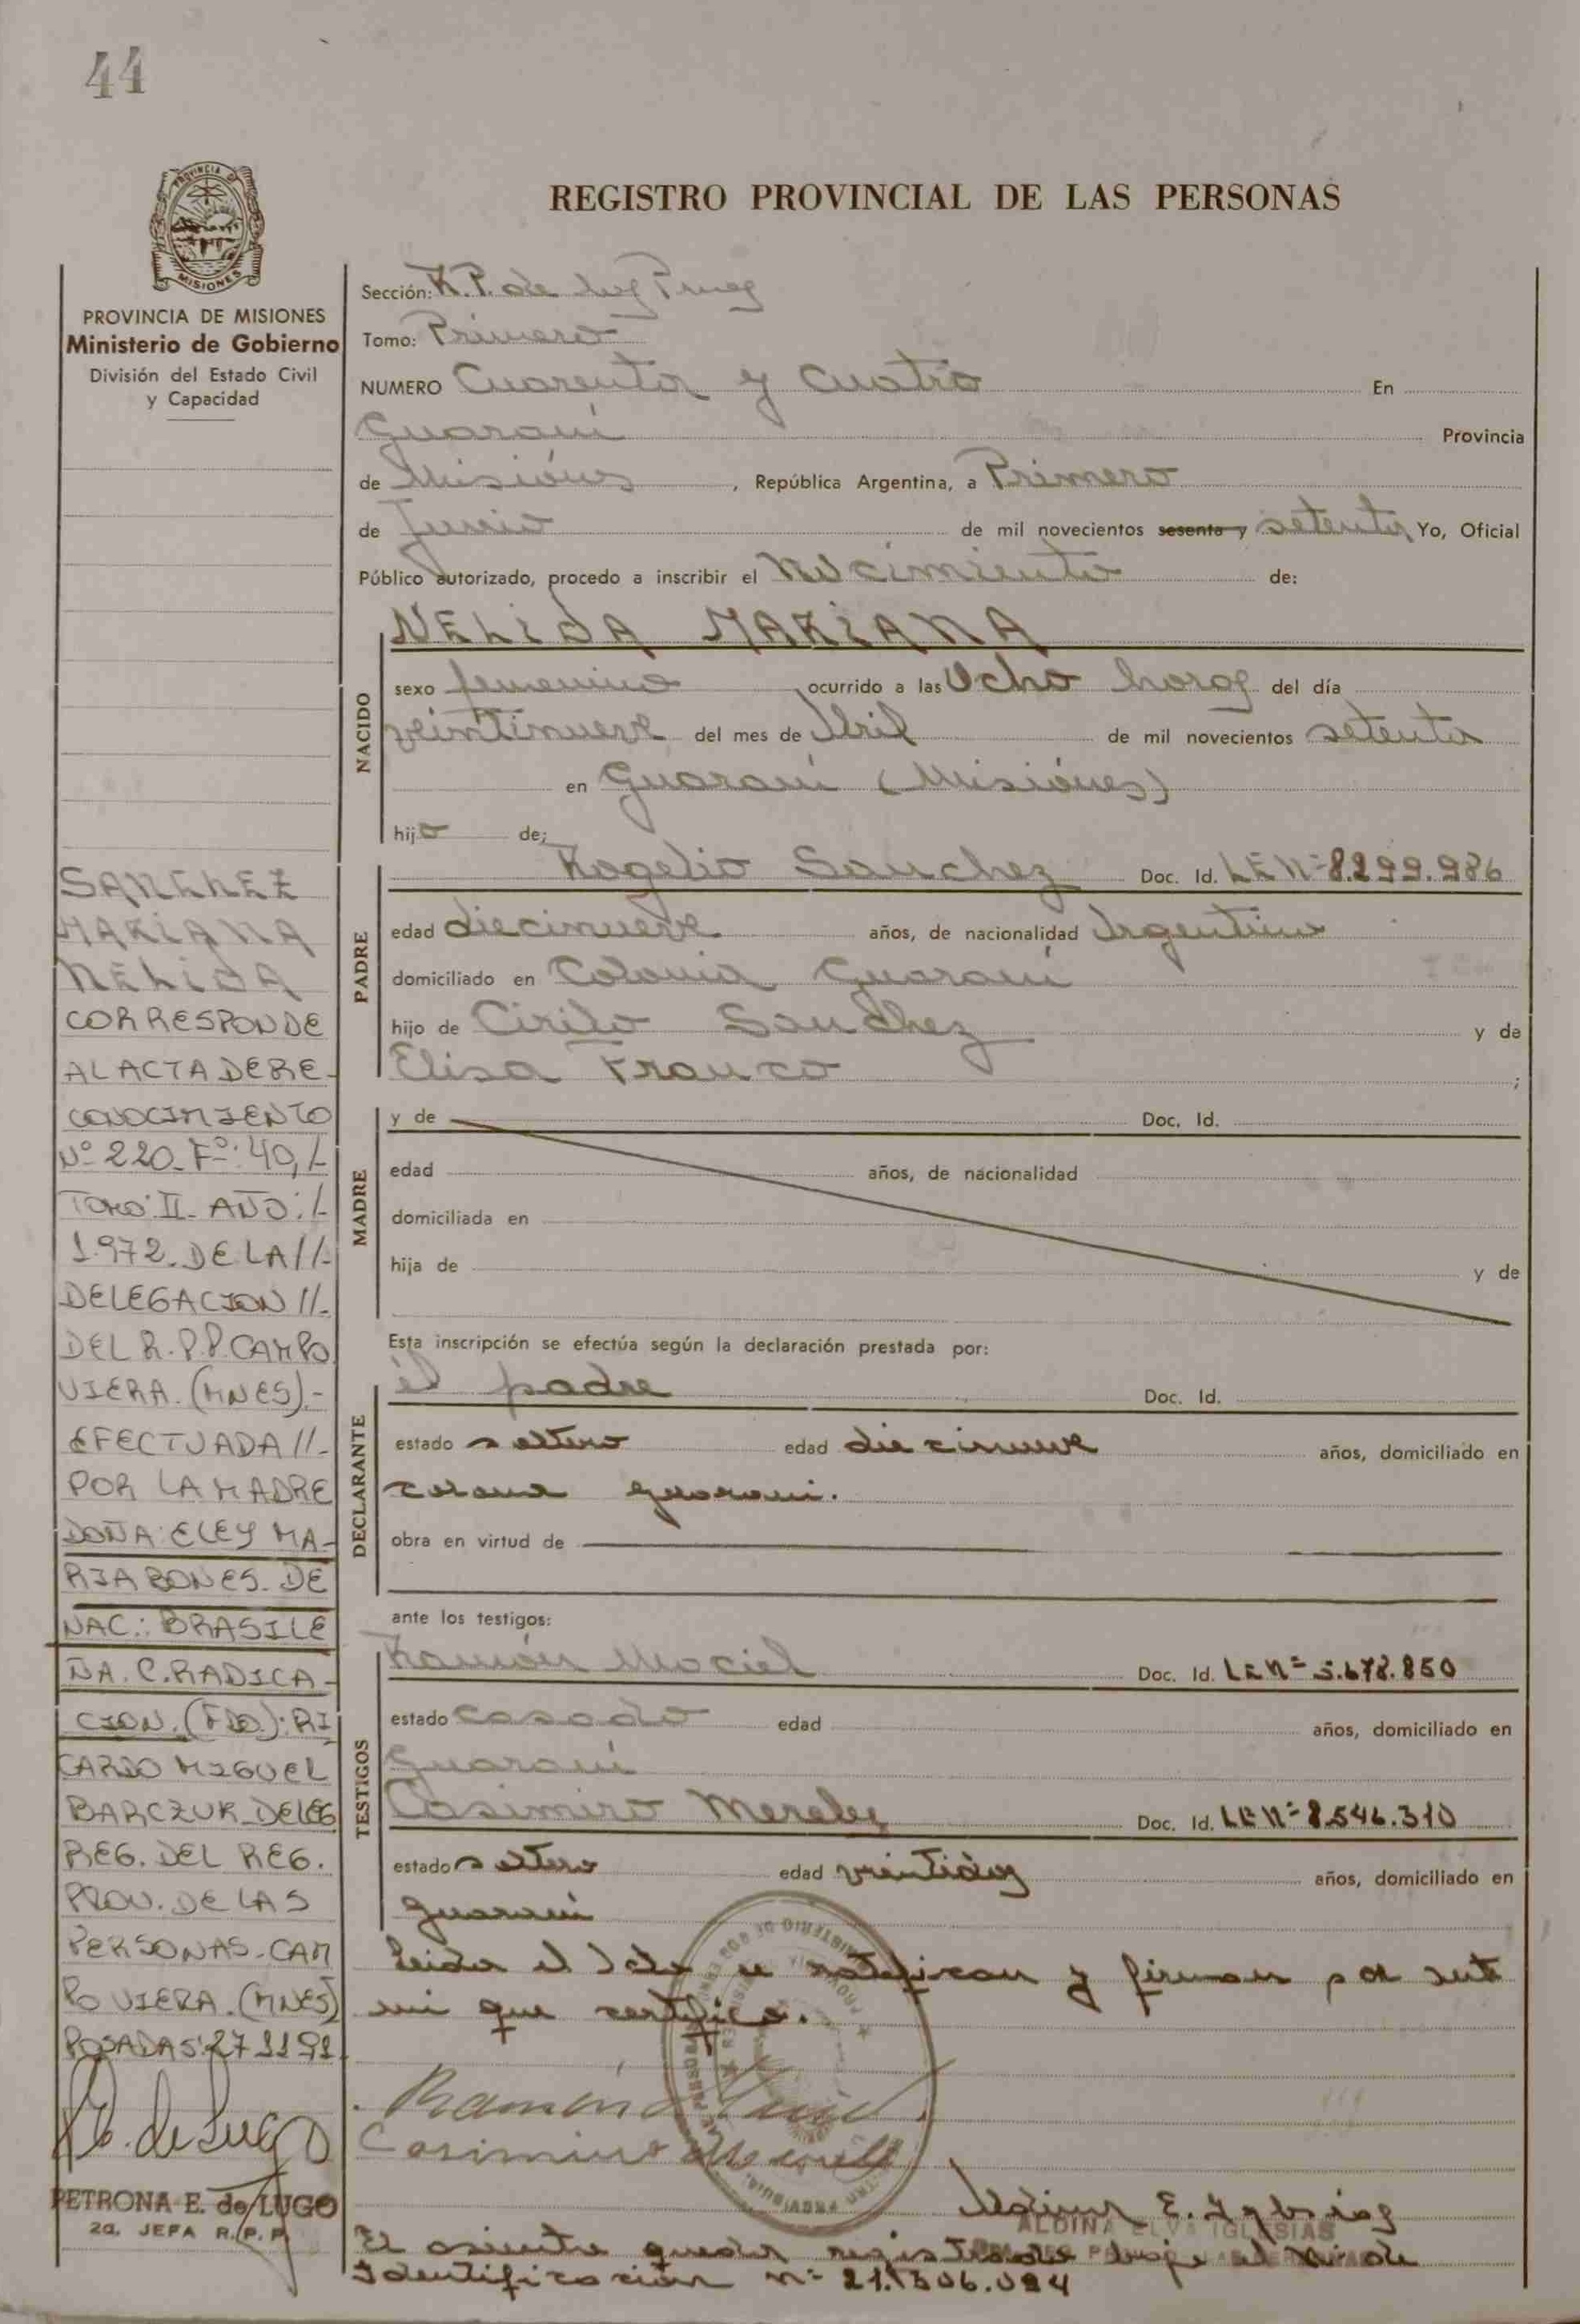 44
PROVINCIA DE
MISIONES
REGISTRO PROVINCIAL DE LAS PERSONAS
PROVINCIA DE MISIONES
Ministerio de Gobierno
División del Estado Civil
y Capacidad
SANCHEZ
MARIANA
NELIDA
CORRESPONDE
AL ACTA DE RE-
CONOCIMIENTO
Nº 220. Fº: 40, /-
TOMO: II. AÑO: /-
1.972. DE LA //-
DELEGACION //-
DEL R.P.P. CAMPO
VIERA. (MNES).-
EFECTUADA //-
POR LA MADRE
DOÑA: ELEY MA-
RIA BONES. DE
NAC.: BRASILE
ÑA. C. RADICA-
CION. (FDO): RI
CARDO MIGUEL
BARCZUK. DELEG
REG. DEL REG.
PROV. DE LAS
PERSONAS. CAM
PO VIERA. (MNES)
POSADAS: 27 11 91
E. de Lugo
PETRONA E. de LUGO
2a. JEFA R.P.P.
Sección: R.P. de las
Tomo: Primero
NUMERO Cuarenta y cuatro En
Guaraní Provincia
de Misiónes, República Argentina, a Primero
de Junio de mil novecientos sesenta y setenta Yo, Oficial
Público autorizado, procedo a inscribir el Nacimiento de:
NELIDA MARIANA
NACIDO
sexo femenino ocurrido a las Ocho horas del día
veintinueve del mes de Abril de mil novecientos setenta
en Guaraní (Misiónes)
hija de;
PADRE
Rogelio Sanchez Doc. Id. LE Nº 8.299.986
edad diecinueve años, de nacionalidad Argentino
domiciliado en Colonia Guaraní
hijo de Cirilo Sanchez y de
Elisa Franco ;
MADRE
y de Doc. Id.
edad años, de nacionalidad
domiciliada en
hija de y de
Esta inscripción se efectúa según la declaración prestada por:
DECLARANTE
el padre Doc. Id.
estado soltero edad diecinueve años, domiciliado en
colonia guarani.
obra en virtud de
ante los testigos:
TESTIGOS
Ramón Maciel Doc. Id. LE Nº 5.678.850
estado casado edad años, domiciliado en
Guaraní
Casimiro Doc. Id. LE Nº 8.546.310
estado soltero edad veintidos años, domiciliado en
guarani
Leida el Acta se ratifican y firman por ante
mi que certifico.
Ramón Maciel
Casimiro
Aldina E. Iglesias
ALDINA ELVA IGLESIAS
El asiente queda registrado bajo el Nº de
Identificación nº 21.306.024